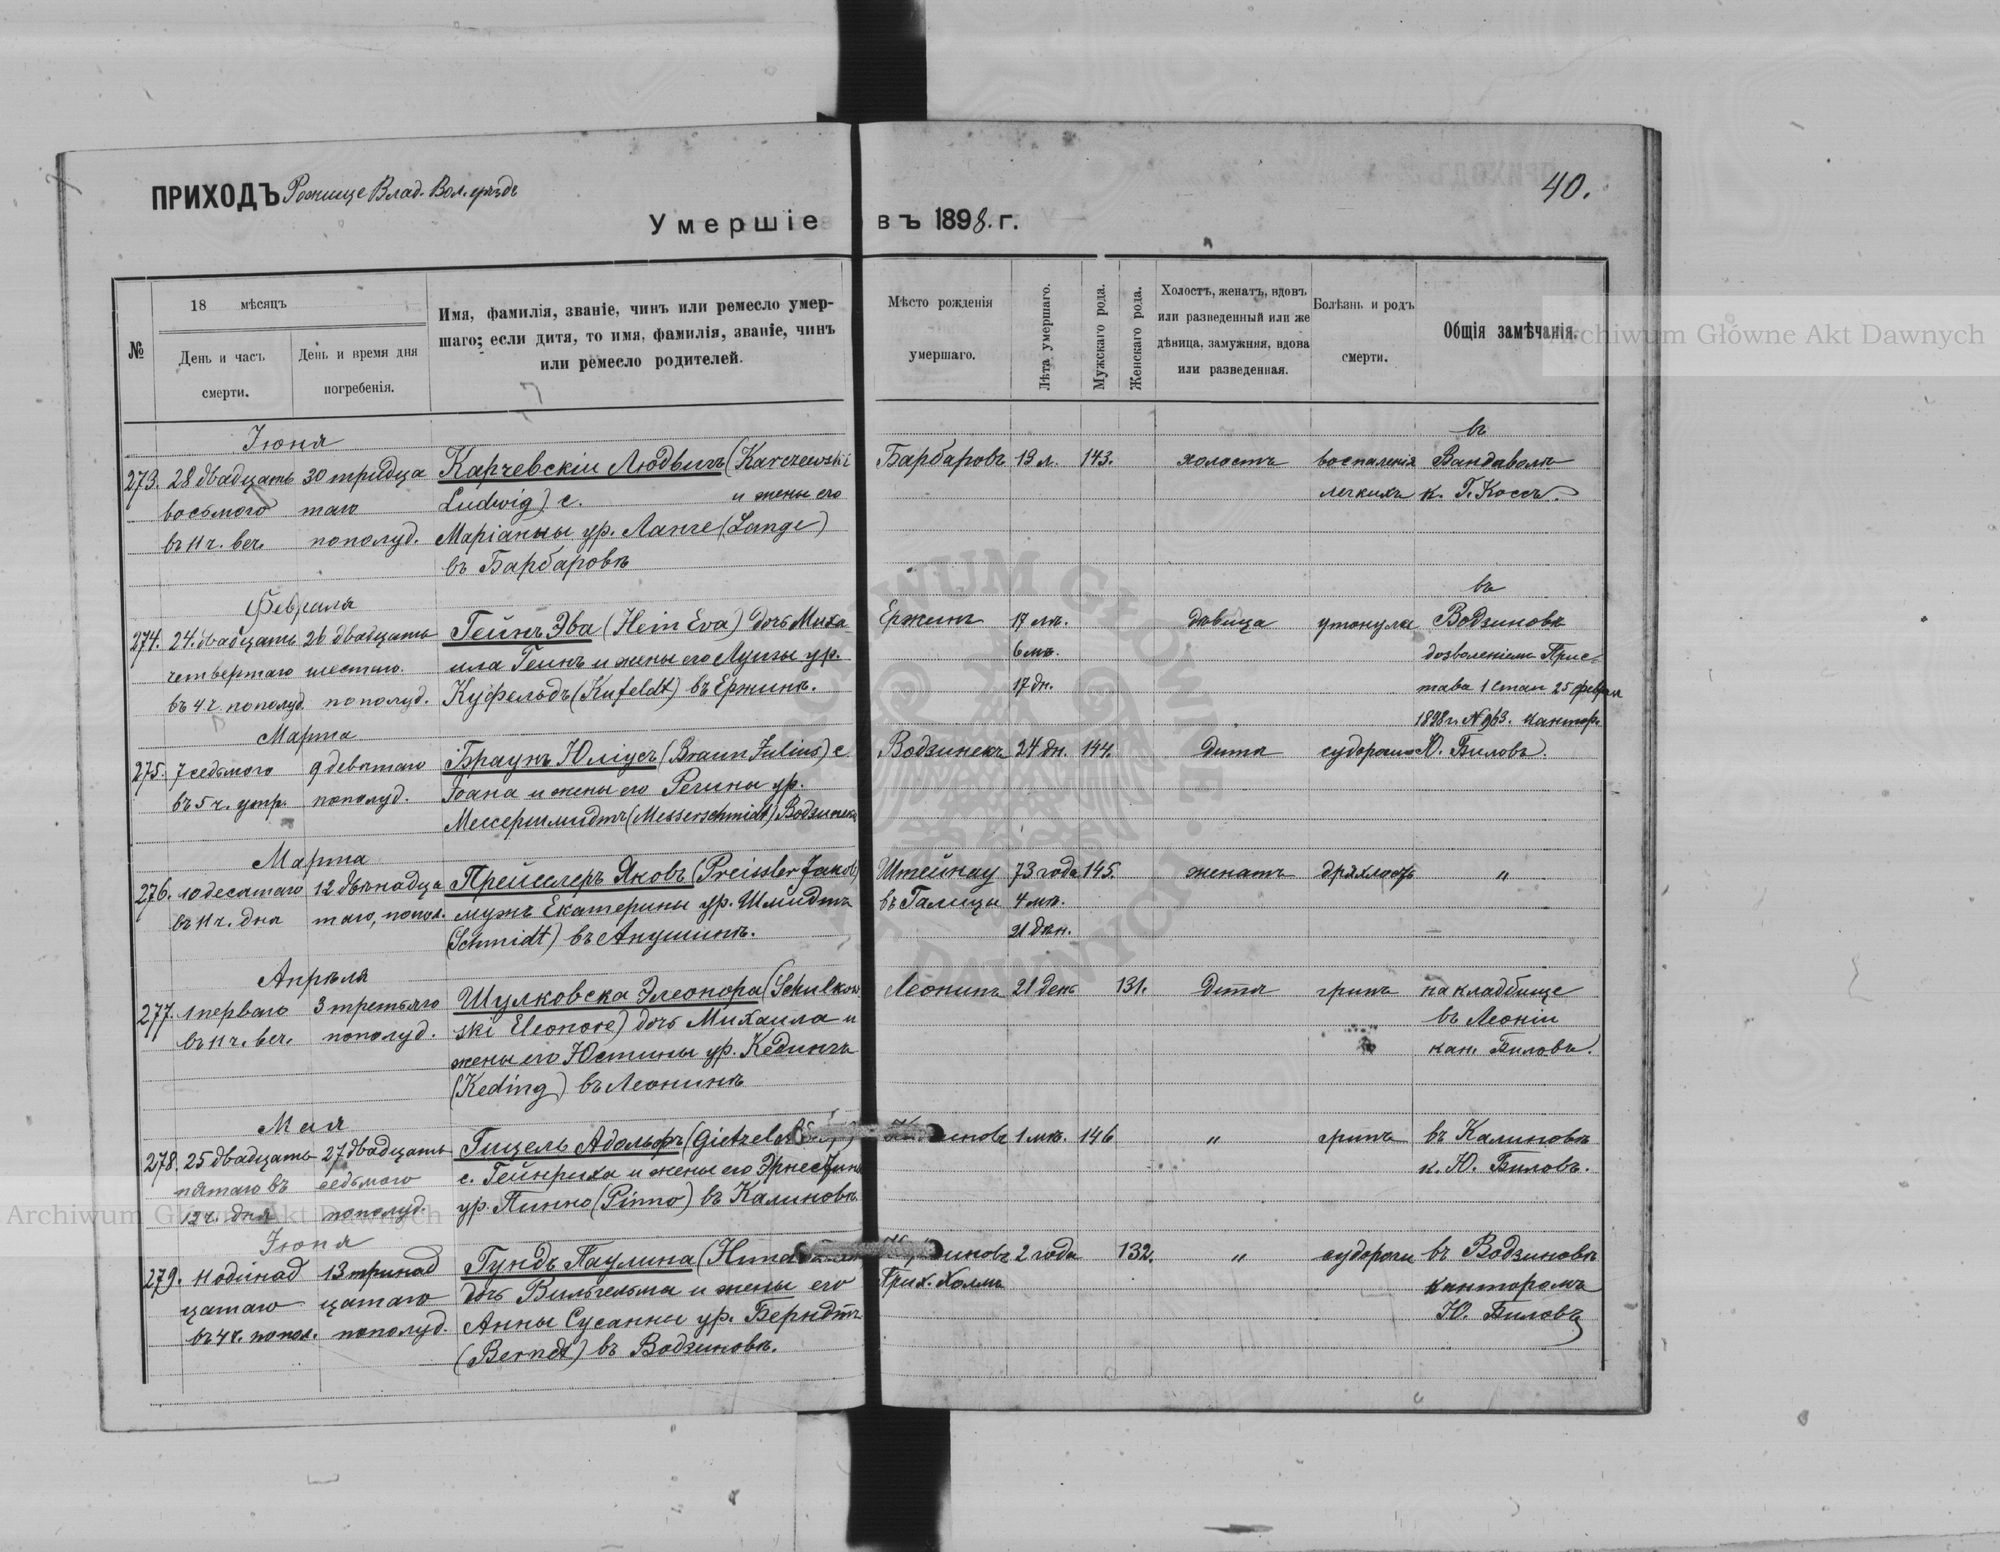 ПРИХОДЪ Рожище Влад. Вол. уѣздъ
40.
Умершіе въ 1898. г.
№
18 мѣсяцъ
День и часъ смерти.
День и время дня погребенія.
Имя, фамилія, званіе, чинъ или ремесло умер-
шаго; если дитя, то имя, фамилія, званіе, чинъ
или ремесло родителей.
Мѣсто рожденія
умершаго.
Лѣта умершаго.
Мужскаго рода.
Женскаго рода.
Холостъ, женатъ, вдовъ
или разведенный или же
дѣвица, замужняя, вдова
или разведенная.
Болѣзнь и родъ
смерти.
Общія замѣчанія.
Archiwum Główne Akt Dawnych
Іюня
въ
273. 28 двадцать 30 тридца Карчевскіи Людвигъ (Karczewski Барбаровъ 19 л. 143. холостъ воспаленія Вандаволь
восьмого таго Ludwig) с. и жены его легкихъ к. Г. Коссъ.
въ 11 ч. веч. пополуд. Маріанны ур. Ланге (Lange)
въ Барбаровѣ
Февраля
въ
274. 24. двадцать 26 двадцать Гейнъ Эва (Hein Eva) дочь Миха- Ержинъ 17 лѣ. дѣвица утонула Водзиновѣ
четвертаго шестаго ила Гейнъ и жены его Луизы ур. 6 мѣ. дозволеніемъ Прис-
въ 4 ч. пополуд. пополуд. Куфельдъ (Kufeldt) въ Ержинѣ. 17 дн. тава 1 Стан 25 Феврал
1898 г. N 963. кантор.
Марта
275. 7 седьмого 9 девятаго Браунъ Юліусъ (Braun Julius) с. Водзинекъ 24 дн. 144. Дитя судороги Ю. Биловъ.
въ 5 ч. утр. пополуд. Іоана и жены его Регины ур.
Мессершмидтъ (Messerschmidt) Водзинекъ
Марта
276. 10 десятаго 12 двѣнадца Прейслеръ Яковъ (Preissler Jakob) Штейнау 73 года 145. женатъ дряхлость "
въ 11 ч. дня таго, попол. мужъ Екатерины ур. Шмидтъ въ Галиціи 4 мѣ.
(Schmidt) въ Анушинѣ. 21 дѣн.
Апрѣля
277. 1 перваго 3 третьяго Шулковска Элеонора (Schulkow Леонинъ 21 день 131. Дитя грипъ на кладбище
въ 11 ч. веч. пополуд. ski Eleonore) дочь Михаила и въ Леоніи
жены его Юстины ур. Кедингъ кан. Биловъ.
(Keding) въ Леонинѣ
Мая
278. 25 двадцать 27 двадцать Гицель Адольфъ (Gietzel 1 мѣ. 146 " грипъ въ Калиновѣ
пятаго въ седьмого с. Гейнриха и жены его Эрнестины к. Ю. Биловъ.
12 ч. дня пополуд. ур. Пинно (Pinno) въ Калиновѣ
Archiwum Główne Akt Dawnych
Іюня
279. 11 одинад 13 тринад Гундъ Паулина 2 года 132. " судороги въ Водзиновѣ
цатаго цатаго дочь Вильгельма и жены его Прих. Холмъ канторомъ
въ 4 ч. попол. пополуд. Анны Сусанны ур. Берндтъ Ю. Биловъ
(Berndt) въ Водзиновѣ.